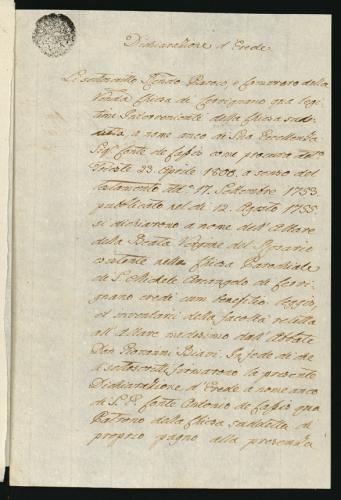 Dichiarazione d'Erede
Li sottoscritti Rendo Paroco, e Cameraro della
Veneda Chiesa di Cervignano qua legi-
time Intervenienti della Chiesa sud-
detta, a nome anco di Sua Eccellenza
Sigr Conte de Cassis come procura
Trieste 23. Aprile 1800. a senso del
testamento 17. Settembre 1753.
pubblicato nel dì 12. Agosto 1755
si dichiarono a nome dell'Altare
della Beata Vergine del Rosario
esistente nella Chiesa Parochiale
di S. Michele Arcangelo di Cervi-
gnano eredi cum beneficio legis,
et inventarii della facoltà relitta
all'Altare medesimo dall'Abbate
Don Giovanni In fede di che
i sottoscritti firmarono la presente
Dichiarazione d'Erede a nome anco
di S. E. Conte Antonio de Cassis qua
Patrono della Chiesa sudetta di
proprio pugno alla presenza